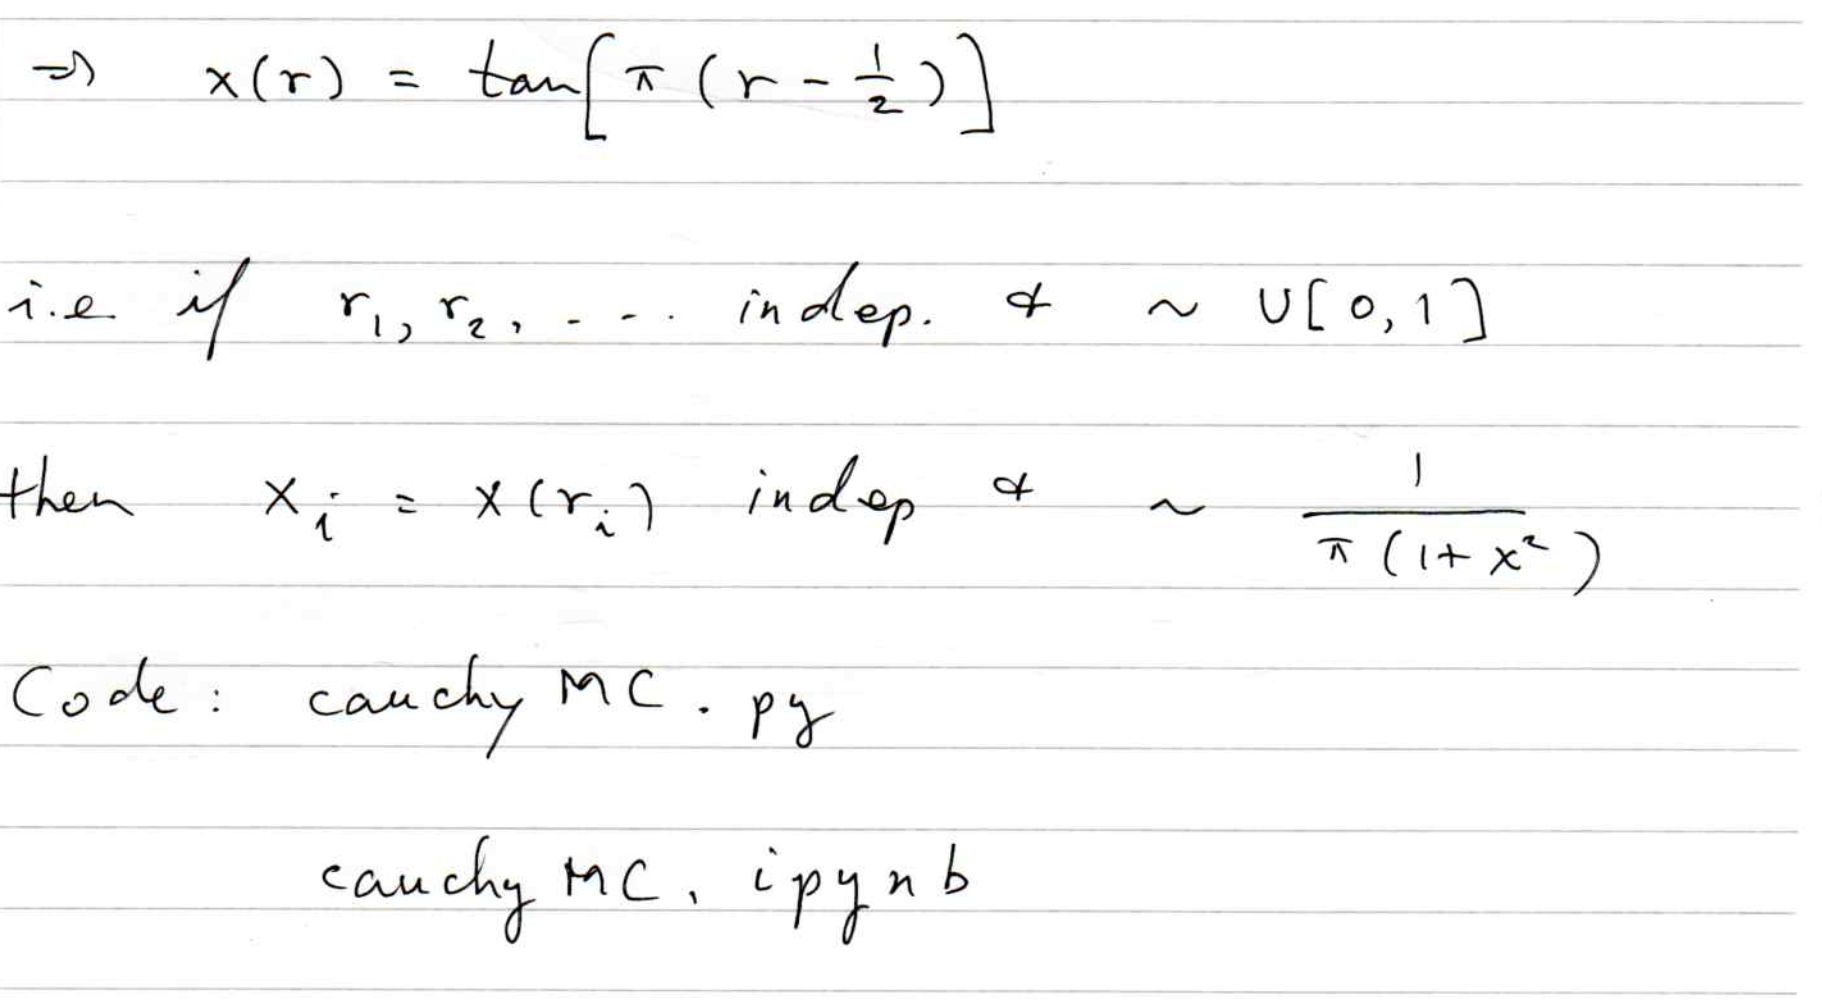 ⇒ x(r) = tan[π(r - 1/2)]
i.e if r₁, r₂, ... indep. & ~ U[0,1]
then xᵢ = x(rᵢ) indep & ~ 1/(π(1+x²))
Code: cauchyMC.py
cauchyMC.ipynb